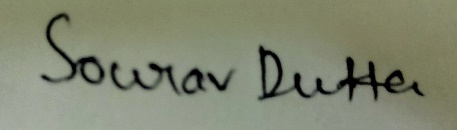 Sourav Dutta